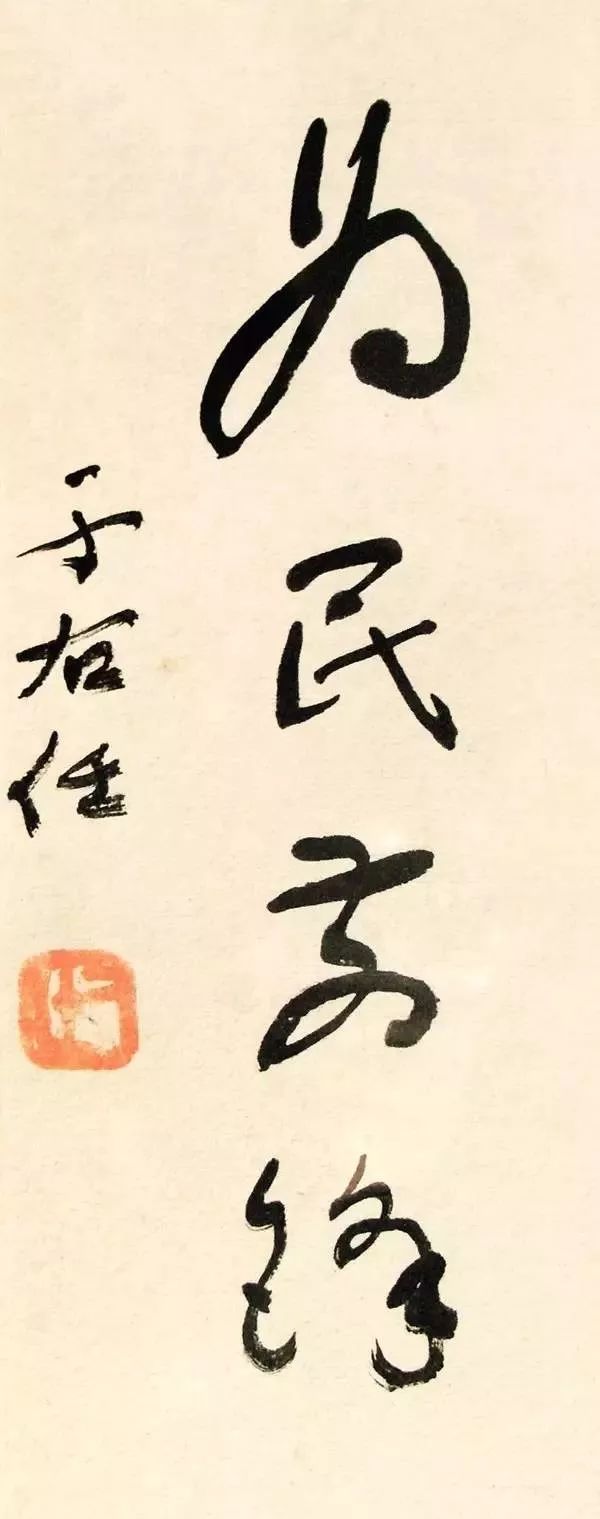 为民前锋
于右任